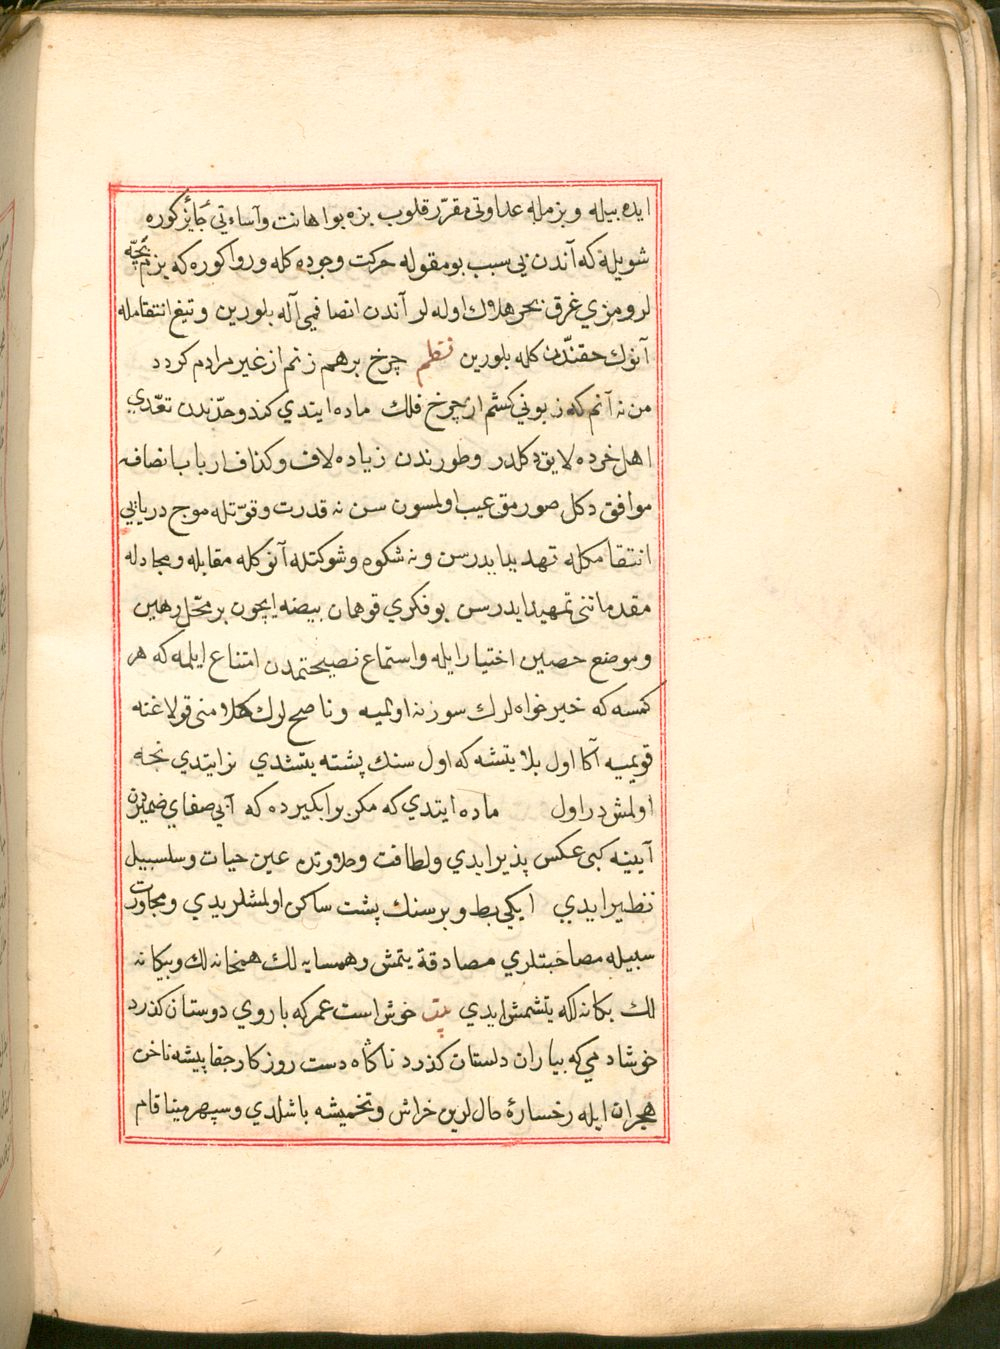 ايده بيله و بزمله عداوتى مقرّر قلوب بزه بو اهانت و آساءتى جَايز كوره
شويله كه آندن بى سبب بو مقوله حركت وجوده كله و روا كوره كه بزم بَچّه
لرومزي غرق بحر هلاك اوله لر آندن انصافمى آله بلورين و تيغ انتقامله
آنوك حقندن كله بلورين نظم چرخ برهم زنم ار غير مرادم كردد
من نه آنم كه زبونى كشم از چرخ فلك ماده ايتدي كند و حدّندن تعّدي
اهل خرده لايق دكلدر و طورندن زياده لاف و كذاف ارباب انصافه
موافق دكل صورمق عيب اولمسون سن نه قدرت و قوّتله موج دريايى
انتقامكله تهديد ايدرسن و نه شكوه و شوكتله آنوكله مقابله و مجادله
مقدماتنى تمهيد ايدرسن بو فكري قو همان بيضه ايچون بر محّل رهين
و موضع حصين اختيار ايله و استماع نصيحتمدن امتناع ايلمه كه هر
كمسه كه خير خواه لرك سوزنه اولميه و ناصح لرك كلامنى قولاغنه
قويميه آكا اول بلا يتشه كه اول سنك پشته يتشدي نر ايتدي نجه
اولمش در اول ماده ايتدي كه مكر بر ابكيرده كه آبى صفاي ضميردن
آيينه كبى عكس پذير ايدي و لطافت و حلاوتده عين حيات و سلسبيل
نظير ايدي ايكى بط و بر سنك پشت ساكن اولمشلريدي و مجاورت
سبيله مصاحبتلري مصادقة يتمش و همسايه لك همخانه لك و بيكانه
لك يكانه لكه يتشمش ايدي بيت خوش است عمر كه با روي دوستان كذرد
خوشا دمي كه بياران دلستان كذرد ناكاه دست روزكار جفا پيشه ناخن
هجران ايله رخسارهٔ حال لرين خراش و تخميشه باشلدي و سپهر مينا فام